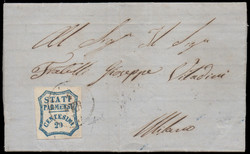 All Sig.r Il Sig.r
Fratelli Giuseppe Vitadini
STATI
PARMENSI
CENTESIMI
20
Milano